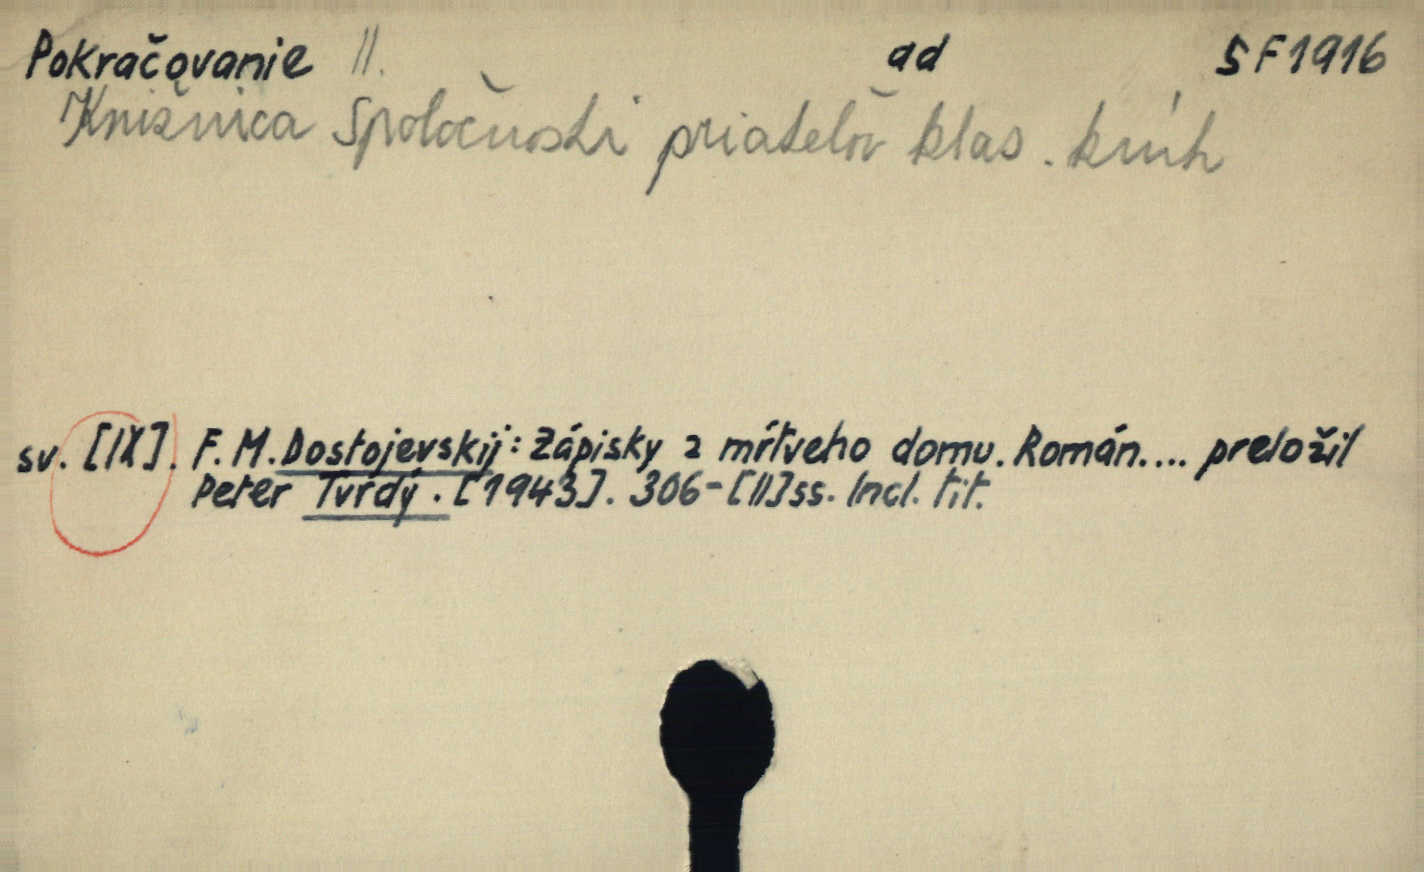 Pokračovanie II. ad SF1916
Knižnica Spoločnosti priatelov klas. kníh
sv. [IX]. F. M. Dostojevskij: Zápisky z mŕtveho domu. Román.... preložil
Peter Tvrdý. [1943]. 306-[II]ss. Incl. tit.